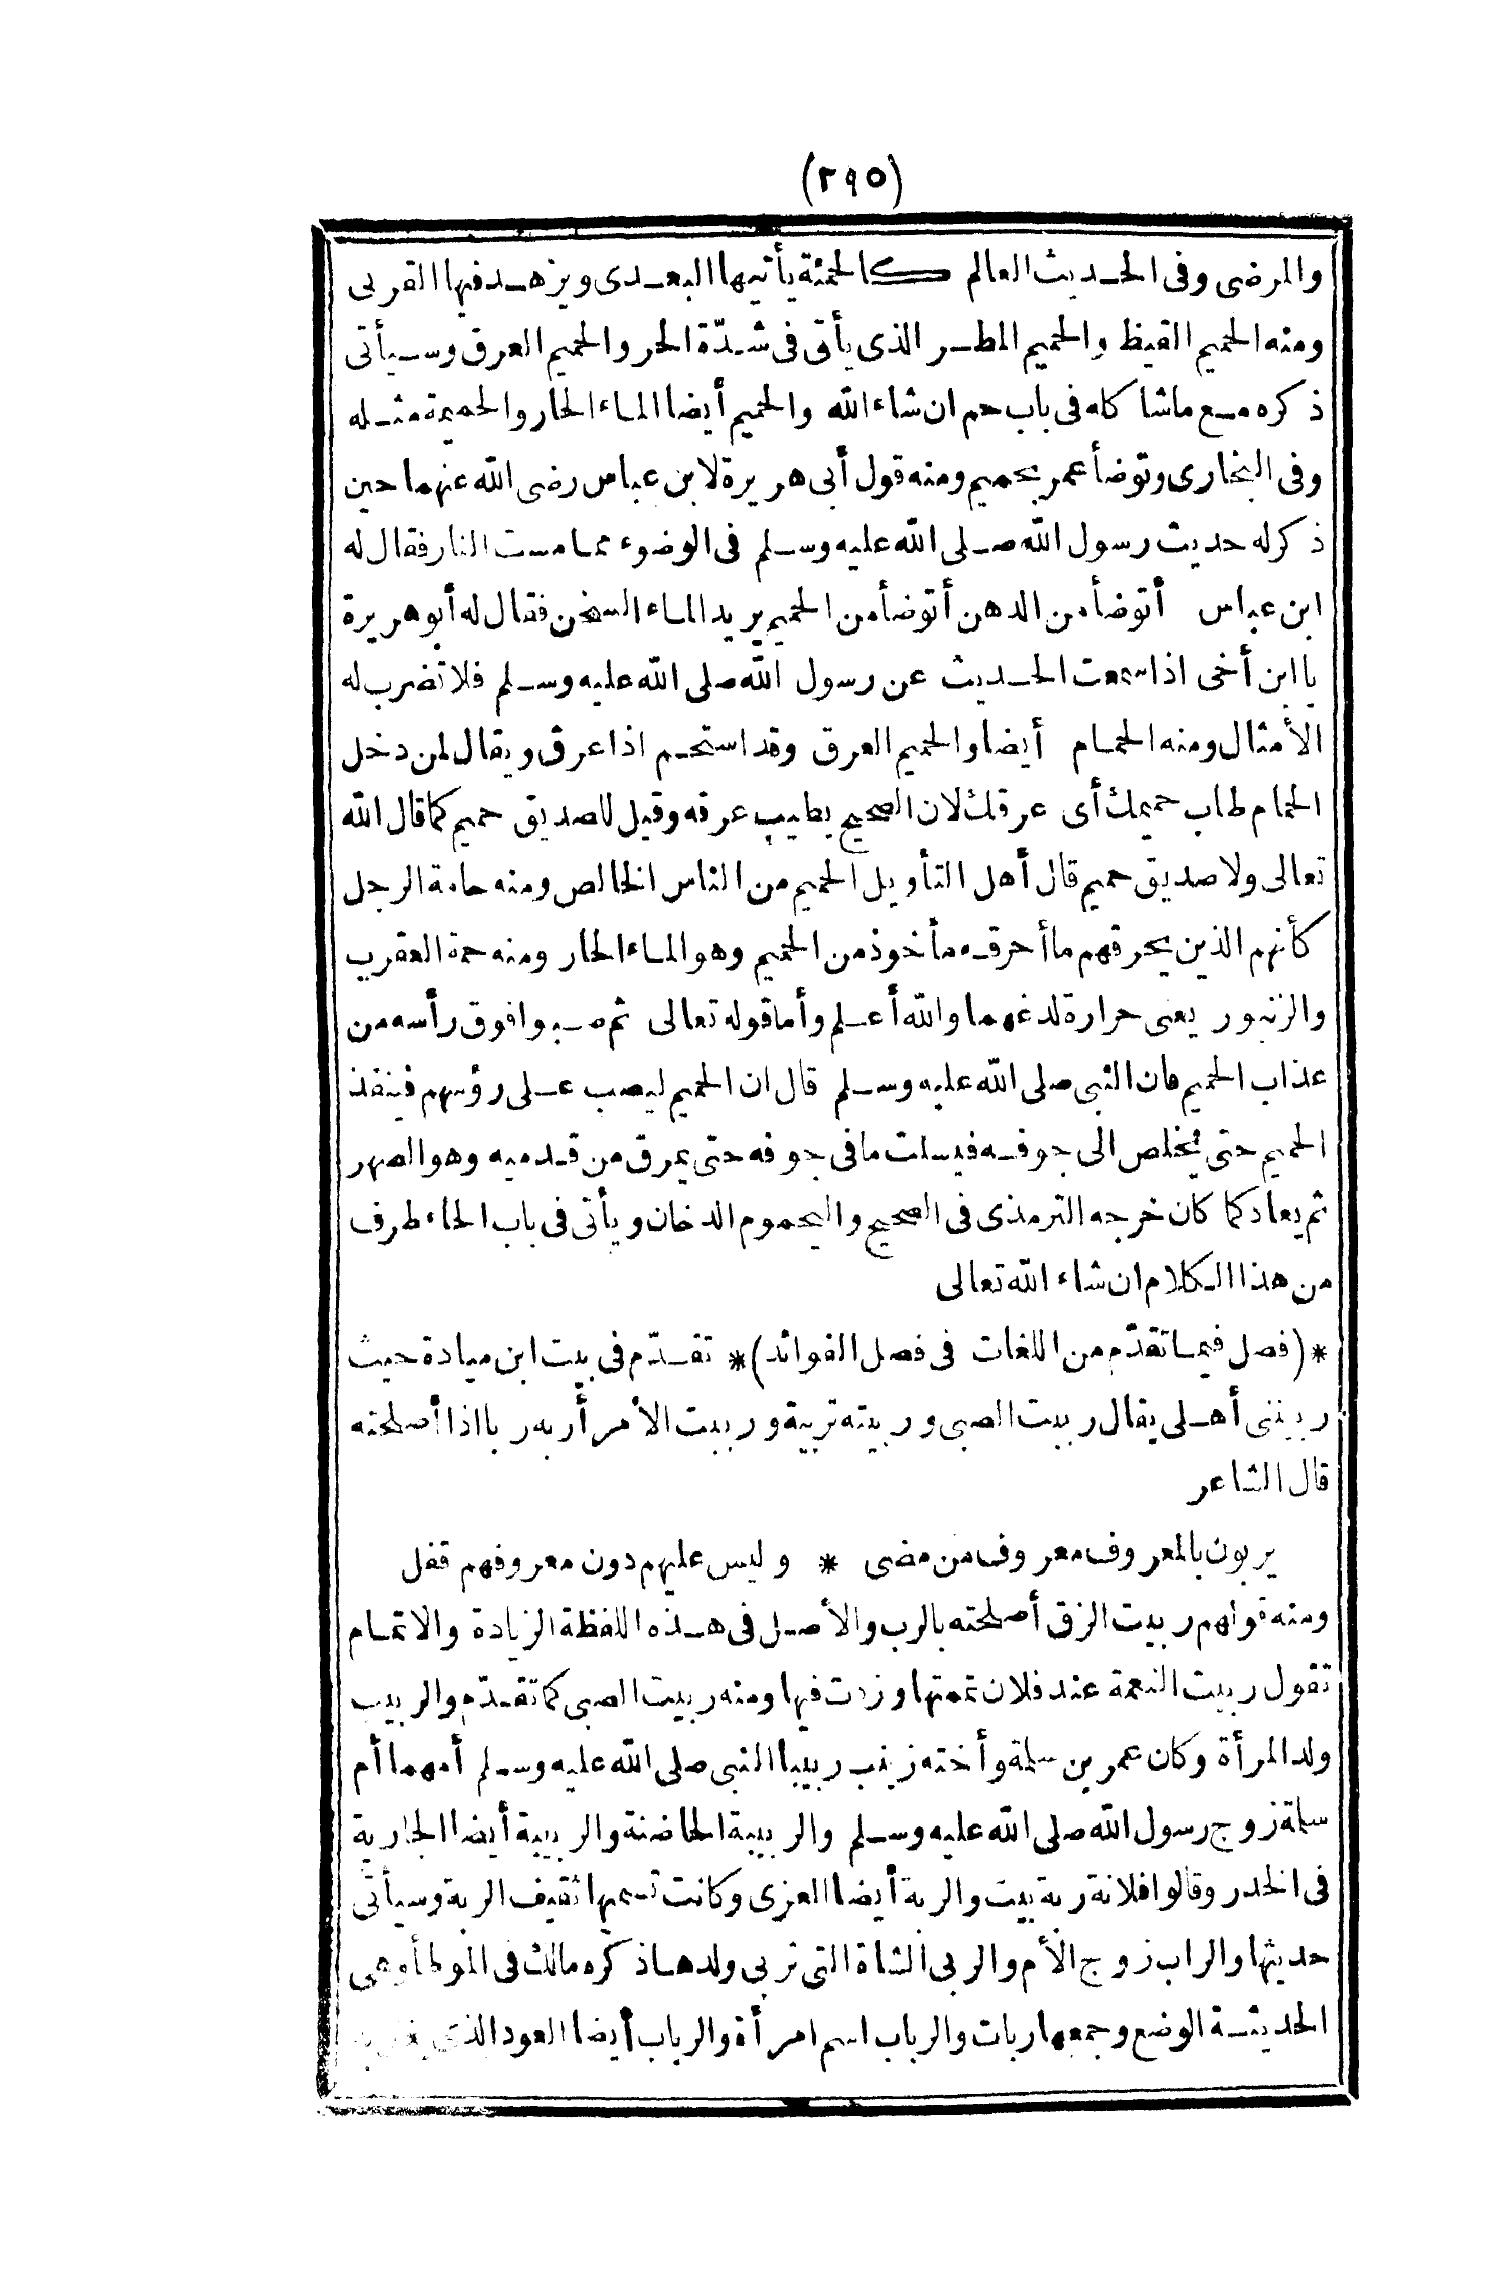 (٢٩٥)
والمرضى وفى الحديث العالم كالحمئة يأتيها البعدى ويزهد فيها القربى
ومنه الحميم القيظ والحميم المطر الذى يأتى فى شدّة الحر والحميم العرق وسيأتى
ذكره مع ماشا كله فى باب حم ان شاء الله والحميم أيضا الماء الحار والحميمة مثله
وفى البخارى وتوضأ عمر بحميم ومنه قول أبى هريرة لابن عباس رضى الله عنهما حين
ذكر له حديث رسول الله صلى الله عليه وسلم فى الوضوء مما مست النار فقال له
ابن عباس أتوضأ من الدهن أتوضأ من الحميم يريد الماء السخن فقال له أبو هريرة
يا ابن أخى اذا سمعت الحديث عن رسول الله صلى الله عليه وسلم فلا تضرب له
الأمثال ومنه الحمام أيضا والحميم العرق وقد استحم اذا عرق ويقال لمن دخل
الحمام طاب حميمك أى عرقك لان الصحيح يطيب عرقه وقيل للصديق حميم كما قال الله
تعالى ولا صديق حميم قال أهل التأويل الحميم من الناس الخالص ومنه حامة الرجل
كأنهم الذين يحرقهم ما أحرقه مأخوذ من الحميم وهو الماء الحار ومنه حمة العقرب
والزنبور يعنى حرارة لدغهما والله أعلم وأما قوله تعالى ثم صبوا فوق رأسه من
عذاب الحميم فان النبى صلى الله عليه وسلم قال ان الحميم ليصب على رؤسهم فينفذ
الحميم حتى يخلص الى جوفه فيسلت ما فى جوفه حتى يمرق من قدميه وهو الصهر
ثم يعاد كما كان خرجه الترمذى فى الصحيح واليحموم الدخان ويأتى فى باب الحاء طرف
من هذا الكلام ان شاء الله تعالى
*(فصل فيما تقدّم من اللغات فى فصل الفوائد)* تقدّم فى بيت ابن ميادة حيث
ربيننى أهلى يقال ربيت الصبى وربيته تربية وربيت الأمر أربه ربا اذا أصلحته
قال الشاعر
يربون بالمعروف معروف من مضى * وليس عليهم دون معروفهم قفل
ومنه قولهم ربيت الزق أصلحته بالرب والأصل فى هذه اللفظة الزيادة والاتمام
تقول ربيت النعمة عند فلان تممتها وزدت فيها ومنه ربيت الصبى كما تقدّم والربيب
ولد المرأة وكان عمر بن سلمة وأخته زينب ربيبا النبى صلى الله عليه وسلم أمهما أم
سلمة زوج رسول الله صلى الله عليه وسلم والربيبة الحاضنة والربيبة أيضا الجارية
فى الخدر وقالوا فلانة ربة بيت والربة أيضا العزى وكانت تسميها ثقيف الربة وسيأتى
حديثها والراب زوج الأم والربى الشاة التى تربى ولدها ذكره مالك فى الموطأ وهى
الحديثة الوضع وجمعها ربات والرباب اسم امرأة والرباب أيضا العود الذى